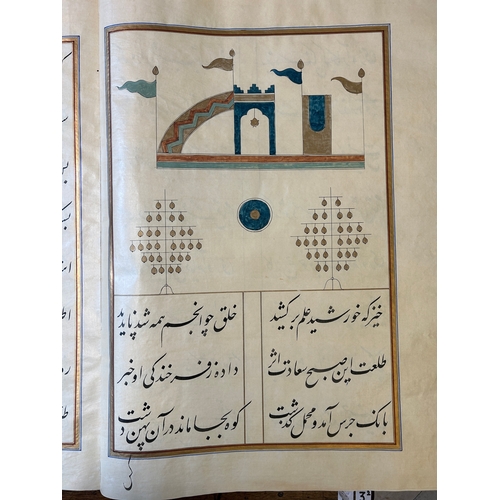 خیز که خورشید علم برکشید خلق چو انجم همه شد ناپدید
طلعت این صبح سعادت اثر داده ز فرخندگی او خبر
بانک جرس آمد و محمل گذشت کوه بجا ماند در آن پهن دشت